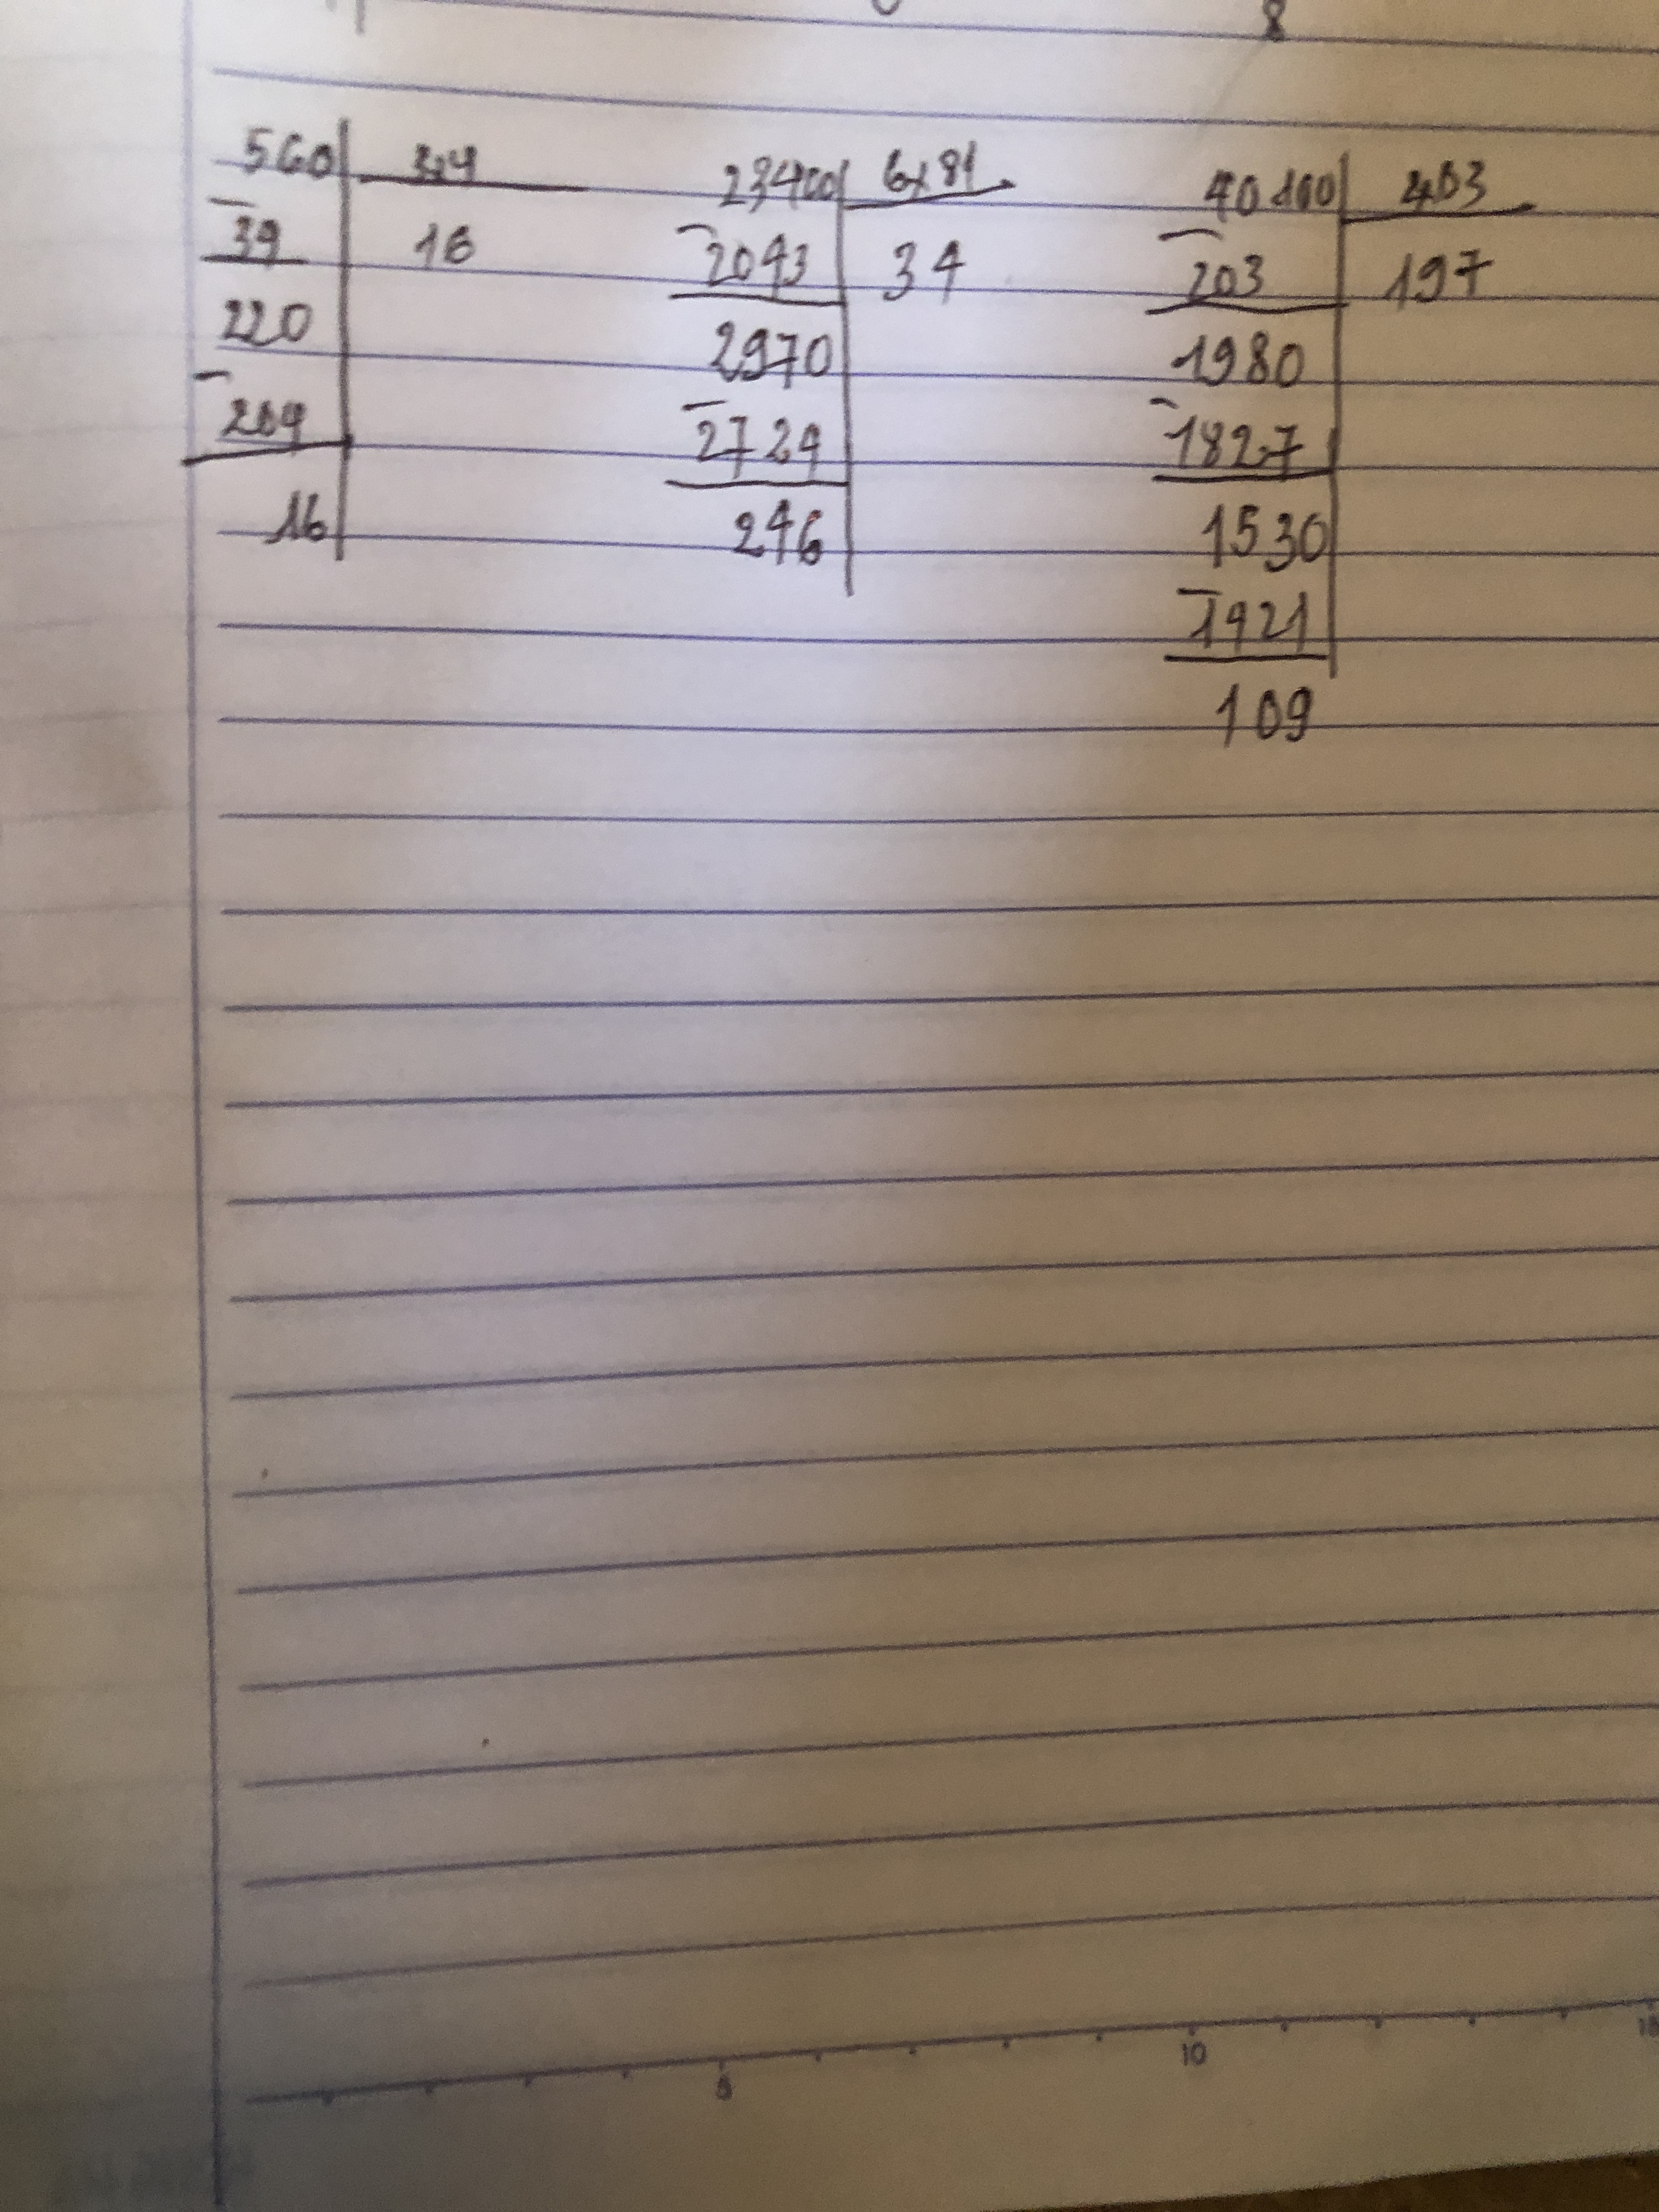 560 3,4
39 16
220
204
16
23400 6,81
2043 34
2970
2724
246
40100 2,03
203 197
1980
1827
1530
1421
109
5 10